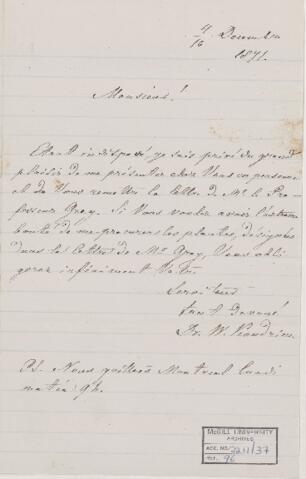 4/16 December
1871.
Monsieur!
Etant indisposé je suis privé du grand
plaisir de me présenter chez Vous en personne
et de Vous remettre la lettre de Mr. le Pro-
fesseur Gray. Si Vous voulez avoir l'extreme
bonté de me procurer les plantes, désignées
dans les lettres de Mr Gray, Vous obli-
gerez infiniment Votre
Serviteur
tout dévoué
Dr. W.
PS. Nous quittons Montreal Lundi
matin 9 h.
McGILL UNIVERSITY
ARCHIVES
ACC. NO. 2211/37
REF. 96